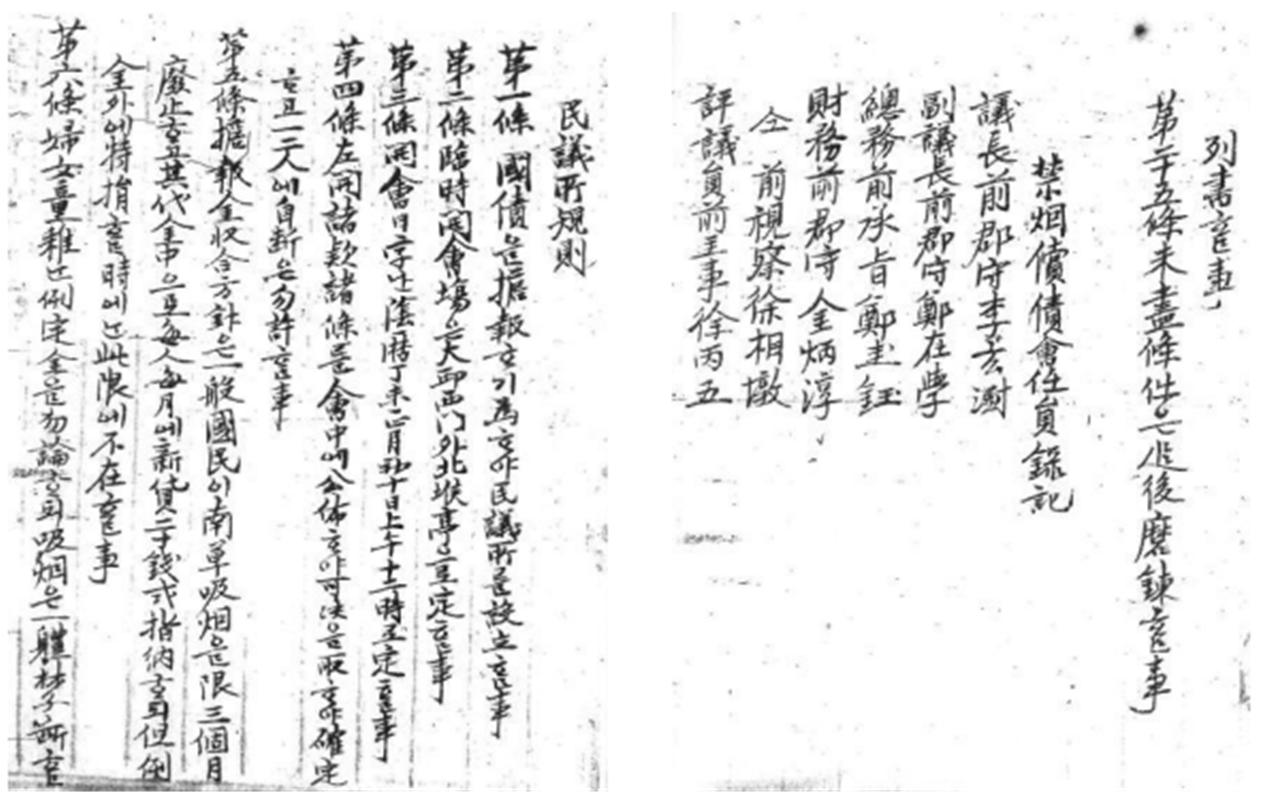 民議所規則
第一條 國債을擔報하기爲하야民議所를設立한事
第二條臨時開會場은大邱西門外北堠亭으로定한事
第三條開會日字난陰曆丁未正月初十日上午十二時로定한事
第四條左開諸款諸條를會中에公佈하야可決을取하야確定
하고一二人에自斷은勿許한事
第五條擔報金收合方針은一般國民이南草吸烟을限三個月
廢止하고其代金中으로每人每月에新貨二十錢式捐納하되但例
金外에特捐할時에난此限에不在할事
第六條婦女童稚난例定金을勿論하되吸烟은一軆禁斷할
列書할事
第二十五條未盡條件은追後磨鍊할事
禁烟償債會任員錄記
議長前郡守李玄澍
副議長前郡守鄭在學
總務前承旨鄭圭鈺
財務前郡守金炳淳
仝 前視察徐相墩
評議員前主事徐丙五